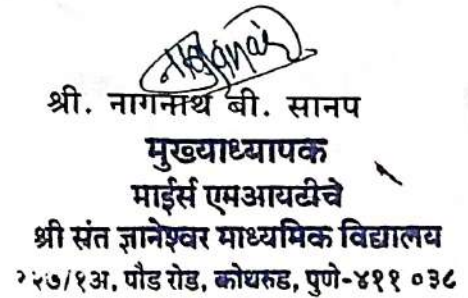 श्री. नागनाथ बी. सानप
मुख्याध्यापक
माईर्स एमआयटीचे
श्री संत ज्ञानेश्वर माध्यमिक विद्यालय
पौड रोड, कोथरुड, पुणे-४११ ०३८